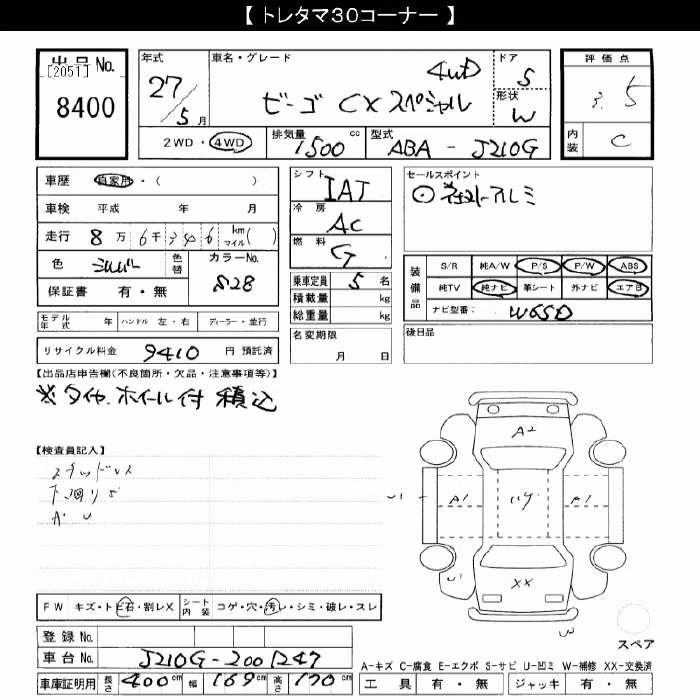 【 トレタマ30コーナー 】
出品No.
[2051]
8400
年式
27/5月
車名・グレード
4WD
ビーゴ CXスペシャル
ドア
5
形状
W
評価点
3.5
内装
C
2WD・4WD
排気量
1500cc
型式
ABA - J210G
車歴 自家用・( )
車検 平成 年 月
走行 8万6千346 km マイル( )
色 シルバー 色替
カラーNo.
S28
保証書 有・無
シフト
IAT
冷房
AC
燃料
G
乗車定員 5名
積載量 kg
総重量 kg
セールスポイント
アルミ
装備品
S/R 純A/W P/S P/W ABS
純TV 純ナビ 革シート 外ナビ エアB
ナビ型番: W65D
モデル年式 年 ハンドル 左・右 ディーラー・並行
名変期限
月 日
後日品
リサイクル料金 9410 円 預託済
【出品店申告欄(不良箇所・欠品・注意事項等)】
※タイヤ、ホイール付 積込
【検査員記入】
スタッドレス
下廻りサ
A・U
A2
U1
A1
A1
U1
XX
W
FW キズ・トビ石・割レX シート内装 コゲ・穴・汚レ・シミ・破レ・スレ
登録No.
車台No. J210G-2001247
車庫証明用 長さ 400cm 幅 169cm 高さ 170cm
スペア
A-キズ C-腐食 E-エクボ S-サビ U-凹ミ W-補修 XX-交換済
工具 有・無 ジャッキ 有・無